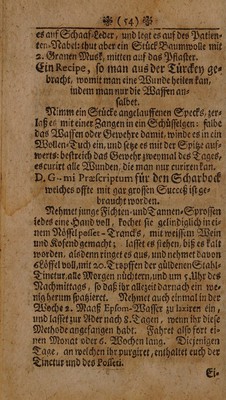 (54)
es auf Schaaf-Leder, und legt es auf des Patien-
ten Nabel: thut aber ein Stück Baumwolle mit
2. Granen Musk, mitten auf das Pflaster.
Ein Recipe, so man aus der Türckey ge-
bracht, womit man eine Wunde heilen kan,
indem man nur die Waffen an-
salbet.
Nimm ein Stücke angelauffenen Specks, zer-
laß es mit einer Zangen in ein Schüsselgen: salbe
das Waffen oder Gewehre damit, winde es in ein
Wollen-Tuch ein, und setze es mit der Spitze auf-
werts: bestreich das Gewehr zweymal des Tages,
es curirt alle Wunden, die man nur curiren kan.
D. G-mi Præscriptum für den Scharbock
welches offte mit gar grossen Succeß ist ge-
braucht worden.
Nehmet junge Fichten- und Tannen-Sprossen
jedes eine Hand voll, kochet sie gelindiglich in ei-
nem Nössel posset-Trancks, mit weissem Wein
und Kofend gemacht; lasset es stehen, biß es kalt
worden, alsdenn ringet es aus, und nehmet davon
6 Löffel voll, mit 20. Tropffen der güldenen Stahl-
Tinctur alle Morgen nüchtern, und um 5. Uhr des
Nachmittags, so daß ihr allezeit darnach ein we-
nig herum spatziret. Nehmet auch einmal in der
Woche 2. Maaß Epsom-Wasser zu laxiren ein,
und lasset zur Ader nach 8. Tagen, wenn ihr diese
Methode angefangen habt. Fahret also fort ei-
nen Monat oder 6. Wochen lang. Diejenigen
Tage, an welchen ihr purgiret, enthaltet euch der
Tinctur und des Posseti.
Ei-